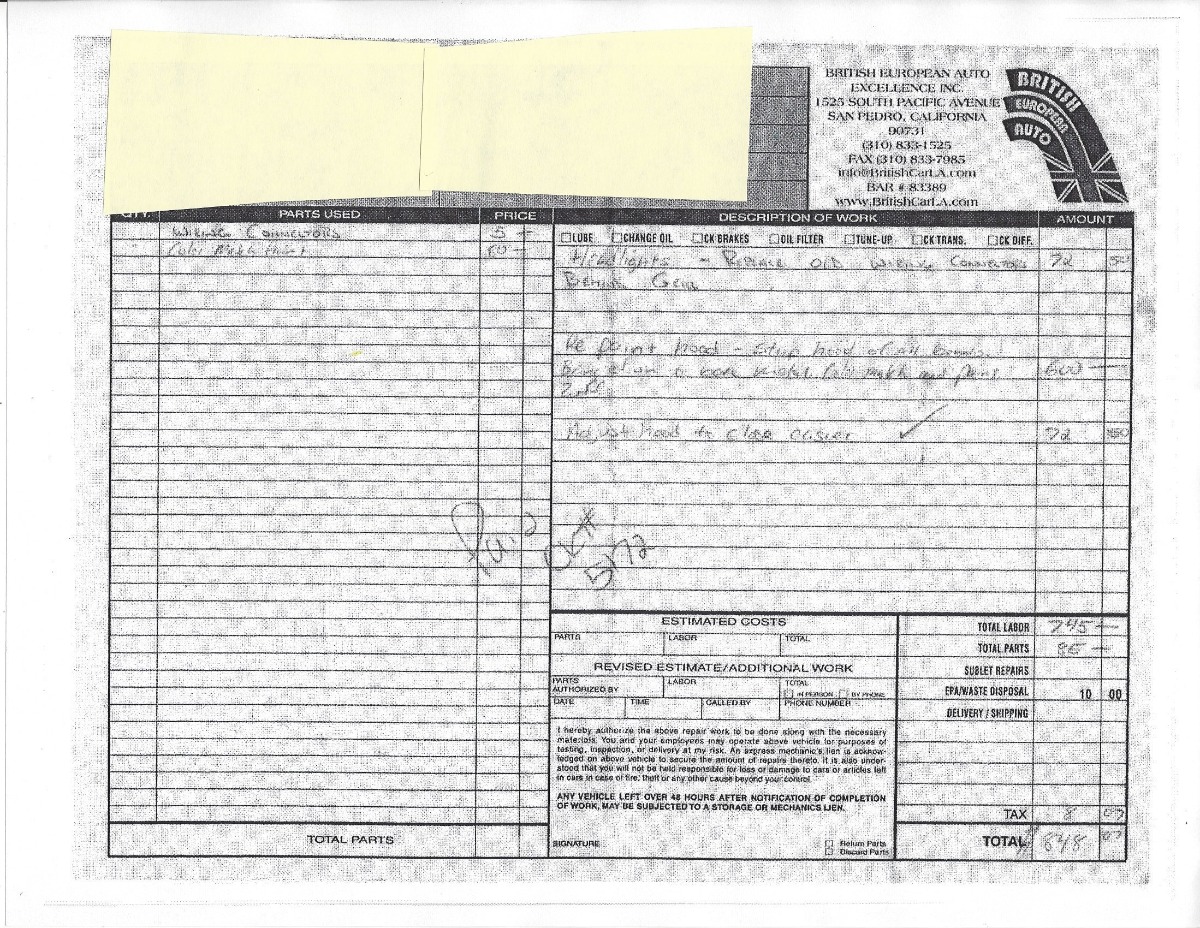 BRITISH EUROPEAN AUTO
EXCELLENCE INC.
1525 SOUTH PACIFIC AVENUE
SAN PEDRO, CALIFORNIA
90731
(310) 833-1525
FAX (310) 833-7985
info@BritishCarLA.com
BAR # 83389
www.BritishCarLA.com
BRITISH
EUROPEAN
AUTO
PARTS USED PRICE
WIRING CONNECTORS 5 —
Color Match Paint 80 —
DESCRIPTION OF WORK AMOUNT
LUBE CHANGE OIL CK BRAKES OIL FILTER TUNE-UP CK TRANS. CK DIFF.
Headlights - Replace OLD WIRING CONNECTORS 72 50
Behind
Re paint hood - Strip hood of all
down metal match and 600 —
Adjust Hood to close easier ✓ 72 50
Paid
5172
ESTIMATED COSTS
PARTS LABOR TOTAL
REVISED ESTIMATE/ADDITIONAL WORK
PARTS LABOR TOTAL
AUTHORIZED BY IN PERSON BY PHONE
DATE TIME CALLED BY PHONE NUMBER
I hereby authorize the above repair work to be done along with the necessary
materials. You and your employees may operate above vehicle for purposes of
testing, inspection, or delivery at my risk. An express mechanic's lien is acknow-
ledged on above vehicle to secure the amount of repairs thereto. It is also under-
stood that you will not be held responsible for loss or damage to cars or articles left
in cars in case of fire, theft or any other cause beyond your control.
ANY VEHICLE LEFT OVER 48 HOURS AFTER NOTIFICATION OF COMPLETION
OF WORK, MAY BE SUBJECTED TO A STORAGE OR MECHANICS LIEN.
SIGNATURE
Return Parts
Discard Parts
TOTAL LABOR 745 —
TOTAL PARTS 85 —
SUBLET REPAIRS
EPA/WASTE DISPOSAL 10 00
DELIVERY / SHIPPING
TAX 8 07
TOTAL 848 07
TOTAL PARTS